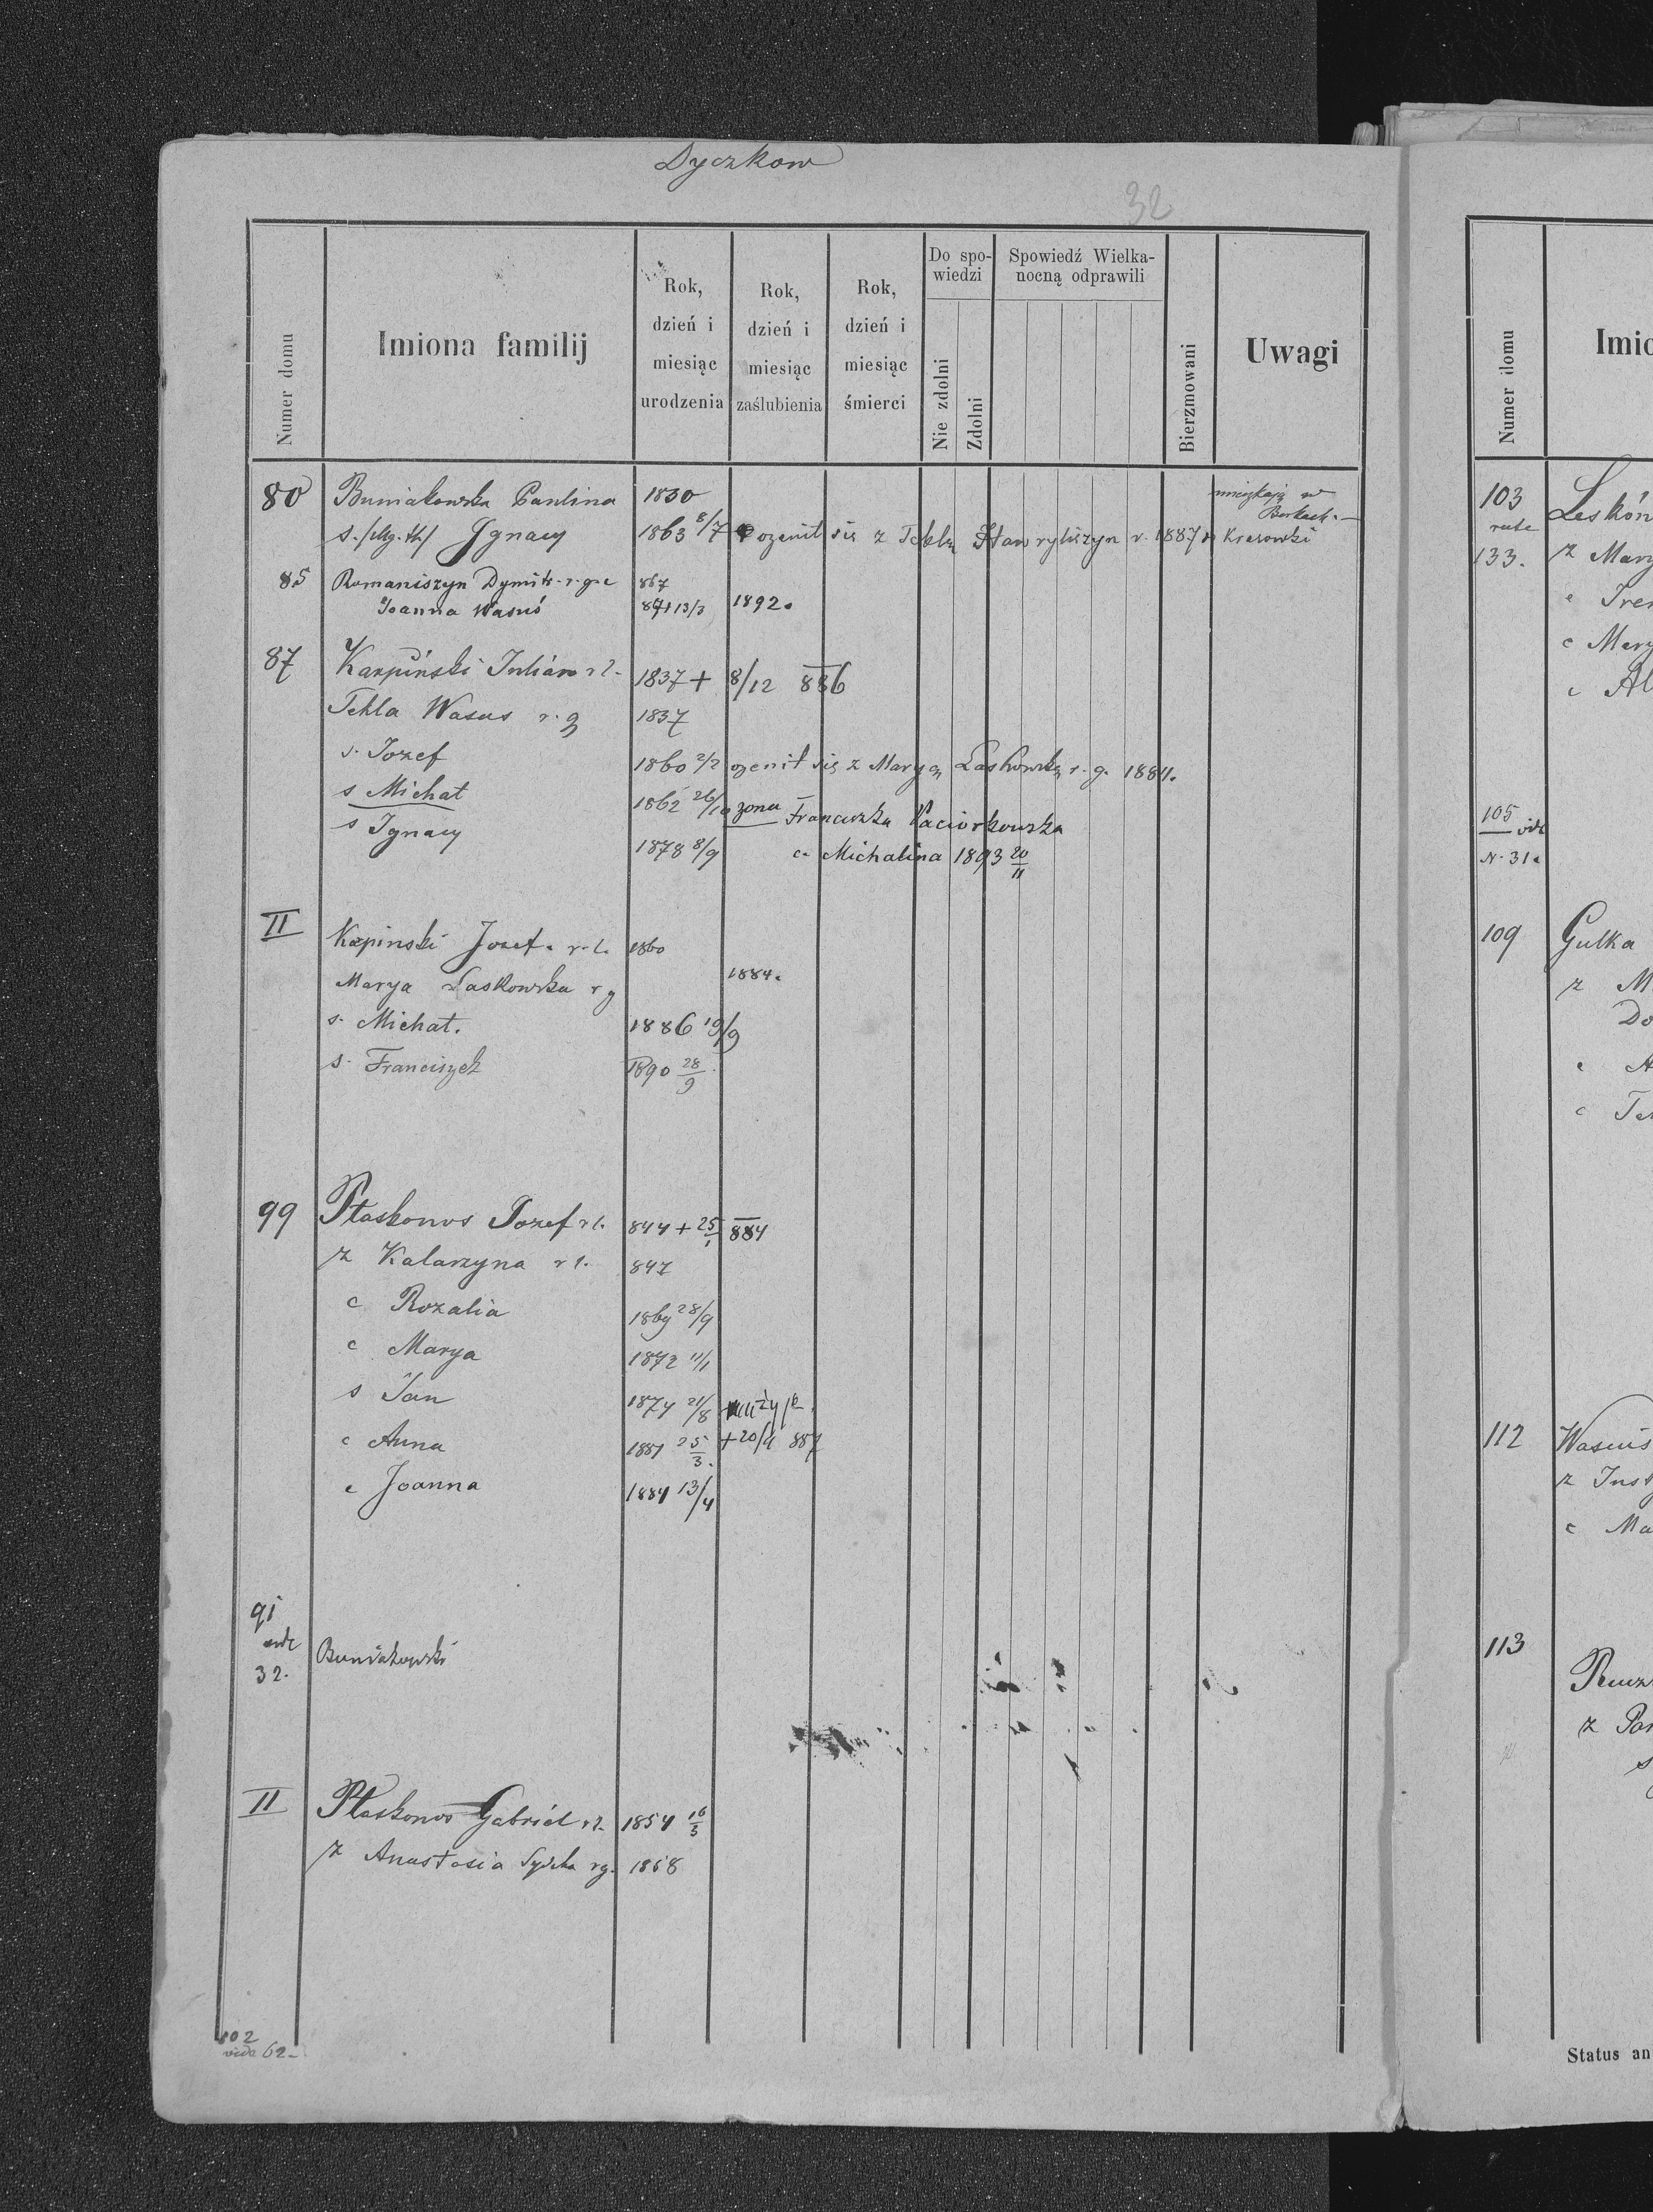 Dyczkow
32
Numer domu
Imiona familij
Rok, dzień i miesiąc urodzenia
Rok, dzień i miesiąc zaślubienia
Rok, dzień i miesiąc śmierci
Do spo-
wiedzi
Nie zdolni
Zdolni
Spowiedź Wielka-
nocną odprawili
Bierzmowani
Uwagi
80 Buniakowska Paulina 1830 w Borkach.
s. Ignacy 1863 8/7 ozenil się z Teklą Hawryliszyn r. 1887
85 Romaniszyn Dymitr r. g. c 867
Joanna Wasuś 871 13/3 1892.
87 Karpiński Julian r l. 1837 + 8/12 886
Tekla Wasus r. g 1837
s. Jozef 1860 2/2 ozenił się z Maryą Laskowską r. g. 1884.
s Michał 1862 26/10 zona Franciszka Paciorkowska
s Ignacy 1878 8/9 c. Michalina 1893 20/11
II Kapinski Jozef. r. l. 1860
Marya Laskowska r g 1884.
s. Michał. 1886 19/9
s. Franciszek 1890 28/9
99 Płaskonos Jozef r l. 844 + 25/1 884
z Katarzyna r l. 847
c Rozalia 1869 28/9
c Marya 1872 11/1
s Jan 1874 21/8 żyje
c Anna 1881 25/3. + 20/4 887
c Joanna 1884 13/4
91
vide
32. Buniakowski
II Płaskonos Gabriel r l. 1854 16/3
z Anastasia rg. 1858
102
vide 62
Numer domu
Imio
103
133.
Leskón
z Mary
c Iren
c Mary
c Al
105 vide
N. 31.
109 Gulka
z M
Do
c A
c Te
112 Wasuis
z Just
c Ma
113
z Par
s
Status an